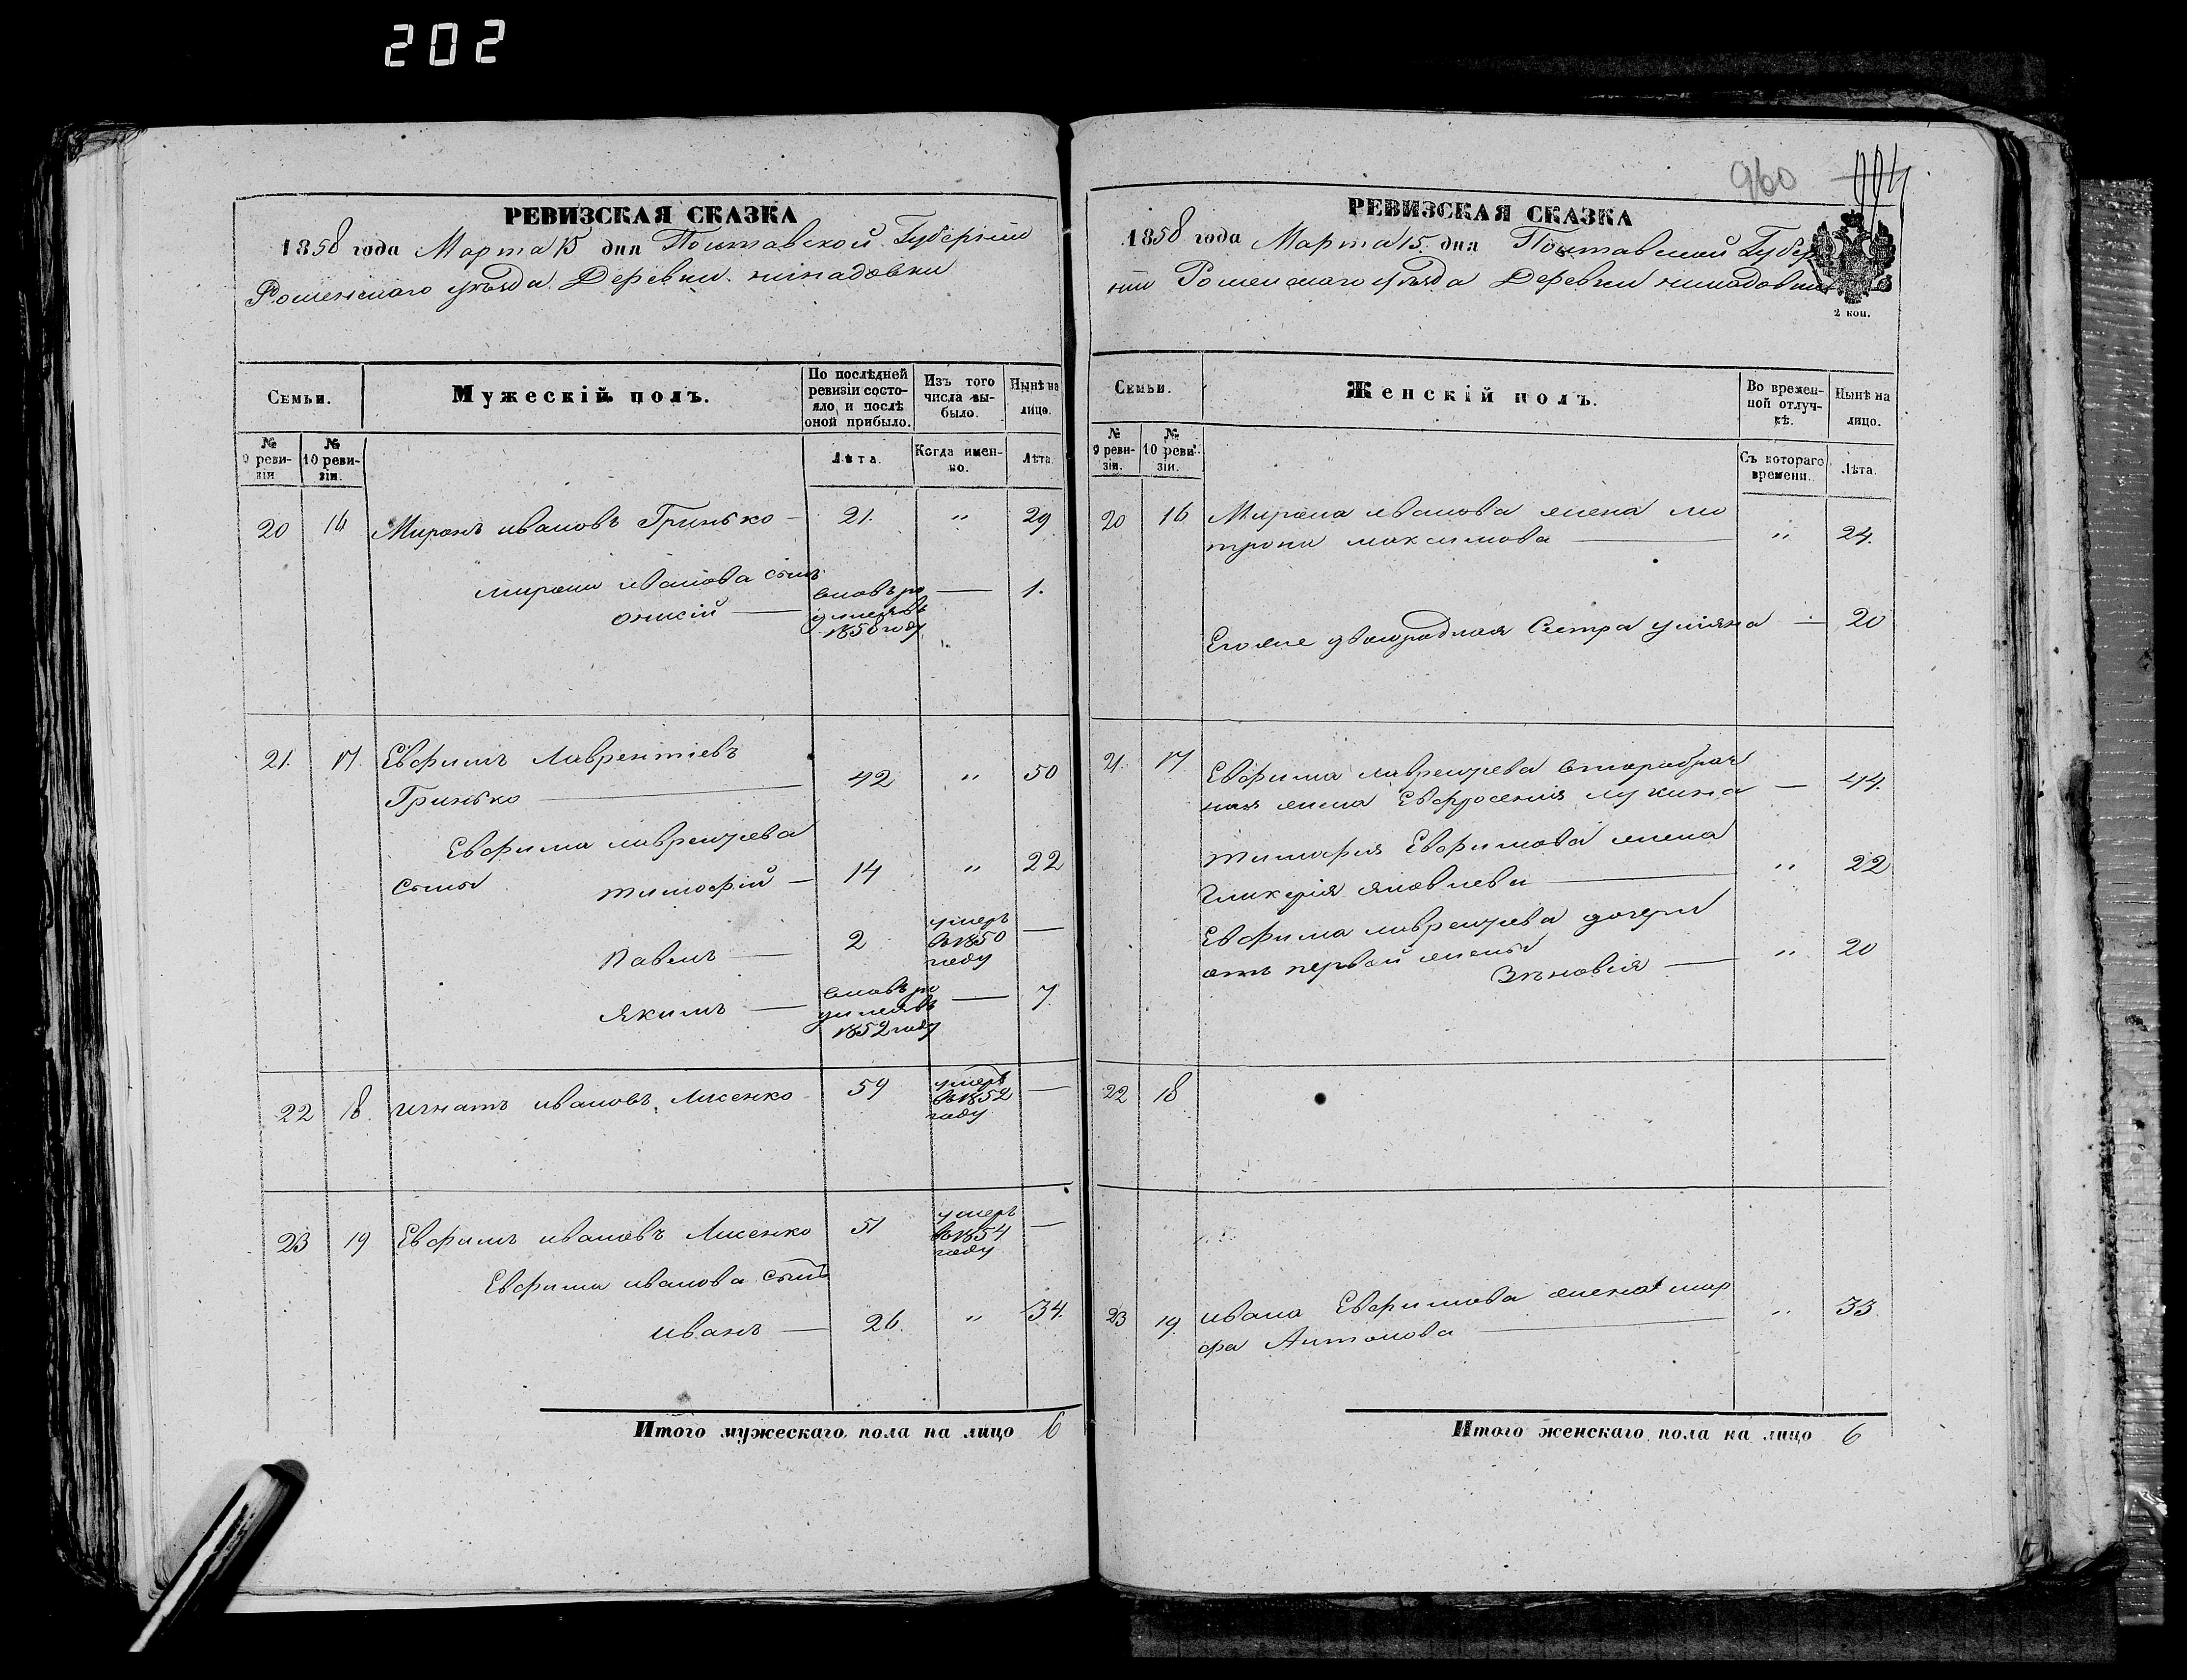 202
РЕВИЗСКАЯ СКАЗКА
1858 года Марта 15 дня Полтавской Губерніи
Роменскаго уѣзда Деревни
Семьи.
Мужескій полъ.
По послѣдней ревизіи состояло, и послѣ оной прибыло.
Изъ того числа выбыло.
Нынѣ на лицо.
№ 9 ревизіи
№ 10 ревизіи.
Лѣта.
Когда именно.
Лѣта.
20 16 Миронъ Ивановъ Гринько — 21. " 29
Мирона Иванова сынъ
Онисій — 1.
1856 году
21. 17 Евфимъ Лаврентіевъ
Гринько — 42 " 50
Евфима Лаврентьева
сыны Тимофій — 14 " 22
Павелъ — 2 умеръ въ 1850 году —
Якимъ — — 7.
1852 году
22 18. Игнатъ Ивановъ Лисенко 59 умеръ въ 1852 году —
23 19 Евфимъ Ивановъ Лисенко 51 умеръ въ 1854 году —
Евфима Иванова сынъ
Иванъ — 26. " 34.
Итого мужескаго пола на лицо 6
960
РЕВИЗСКАЯ СКАЗКА
1858 года Марта 15 дня Полтавской Губер
ніи Роменскаго уѣзда Деревни
2 коп.
Семьи.
Женскій полъ.
Во временной отлучкѣ.
Нынѣ на лицо.
№ 9 ревизіи.
№ 10 ревизіи.
Съ котораго времени.
Лѣта.
20 16 Мирона Иванова жена Мо
трона Максимова — " 24.
Его же двоюродная сестра Уліяна — 20
21. 17 Евфима Лаврентьева второбрач
ная жена Евфросенія Лукина — 44.
Тимофія Евфимова жена
Гликерія Яковлева — " 22
Евфима Лаврентьева дочери
отъ первой жены
Зѣновія — " 20
22 18
23 19. Ивана Евфимова жена Мар
фа Антонова — " 33
Итого женскаго пола на лицо 6